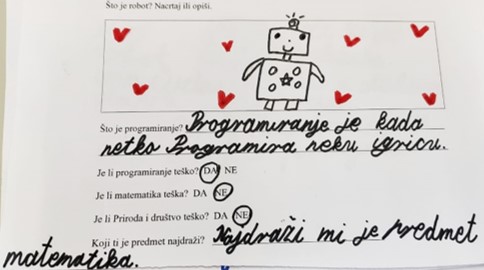 Što je robot? Nacrtaj ili opiši.
Što je programiranje? Programiranje je kada
netko Programira neku igricu.
Je li programiranje teško? DA NE
Je li matematika teška? DA NE
Je li Priroda i društvo teško? DA NE
Koji ti je predmet najdraži? Najdraži mi je predmet
matematika.